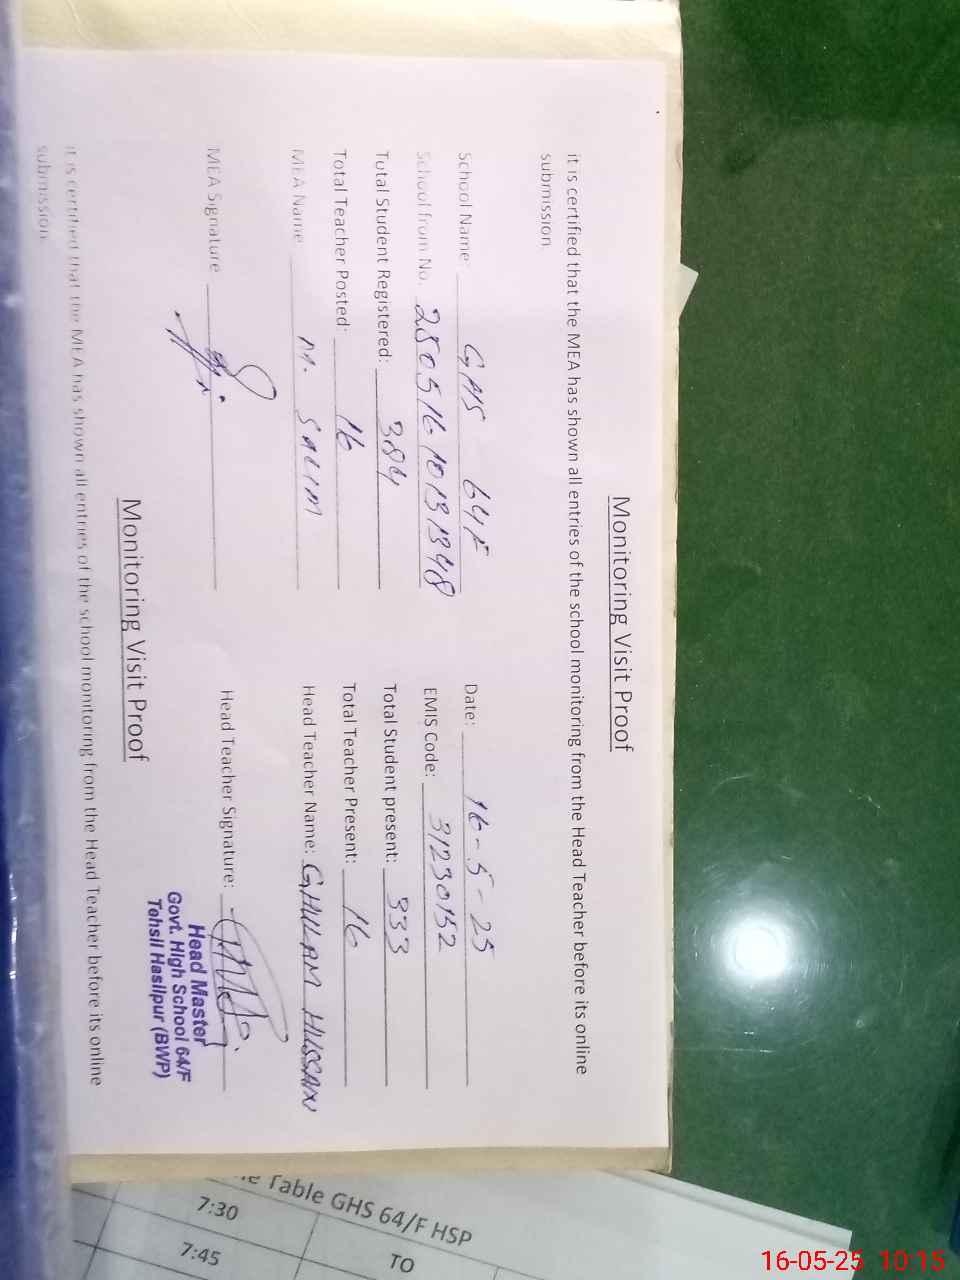 Monitoring Visit Proof
it is certified that the MEA has shown all entries of the school monitoring from the Head Teacher before its online
submission
School Name: GHS 64F Date: 16-5-25
School from No. EMIS Code: 31230152
Total Student Registered: 384 Total Student present: 333
Total Teacher Posted: 16 Total Teacher Present: 16
MEA Name M. SALIM Head Teacher Name: GHULAM HUSSAIN
MEA Signature Head Teacher Signature:
Head Master
Govt. High School 64/F
Tehsil Hasilpur (BWP)
Monitoring Visit Proof
it is certified that the MEA has shown all entries of the school monitoring from the Head Teacher before its online
submission
Table GHS 64/F HSP
7:30
7:45 TO
16-05-25 10:15